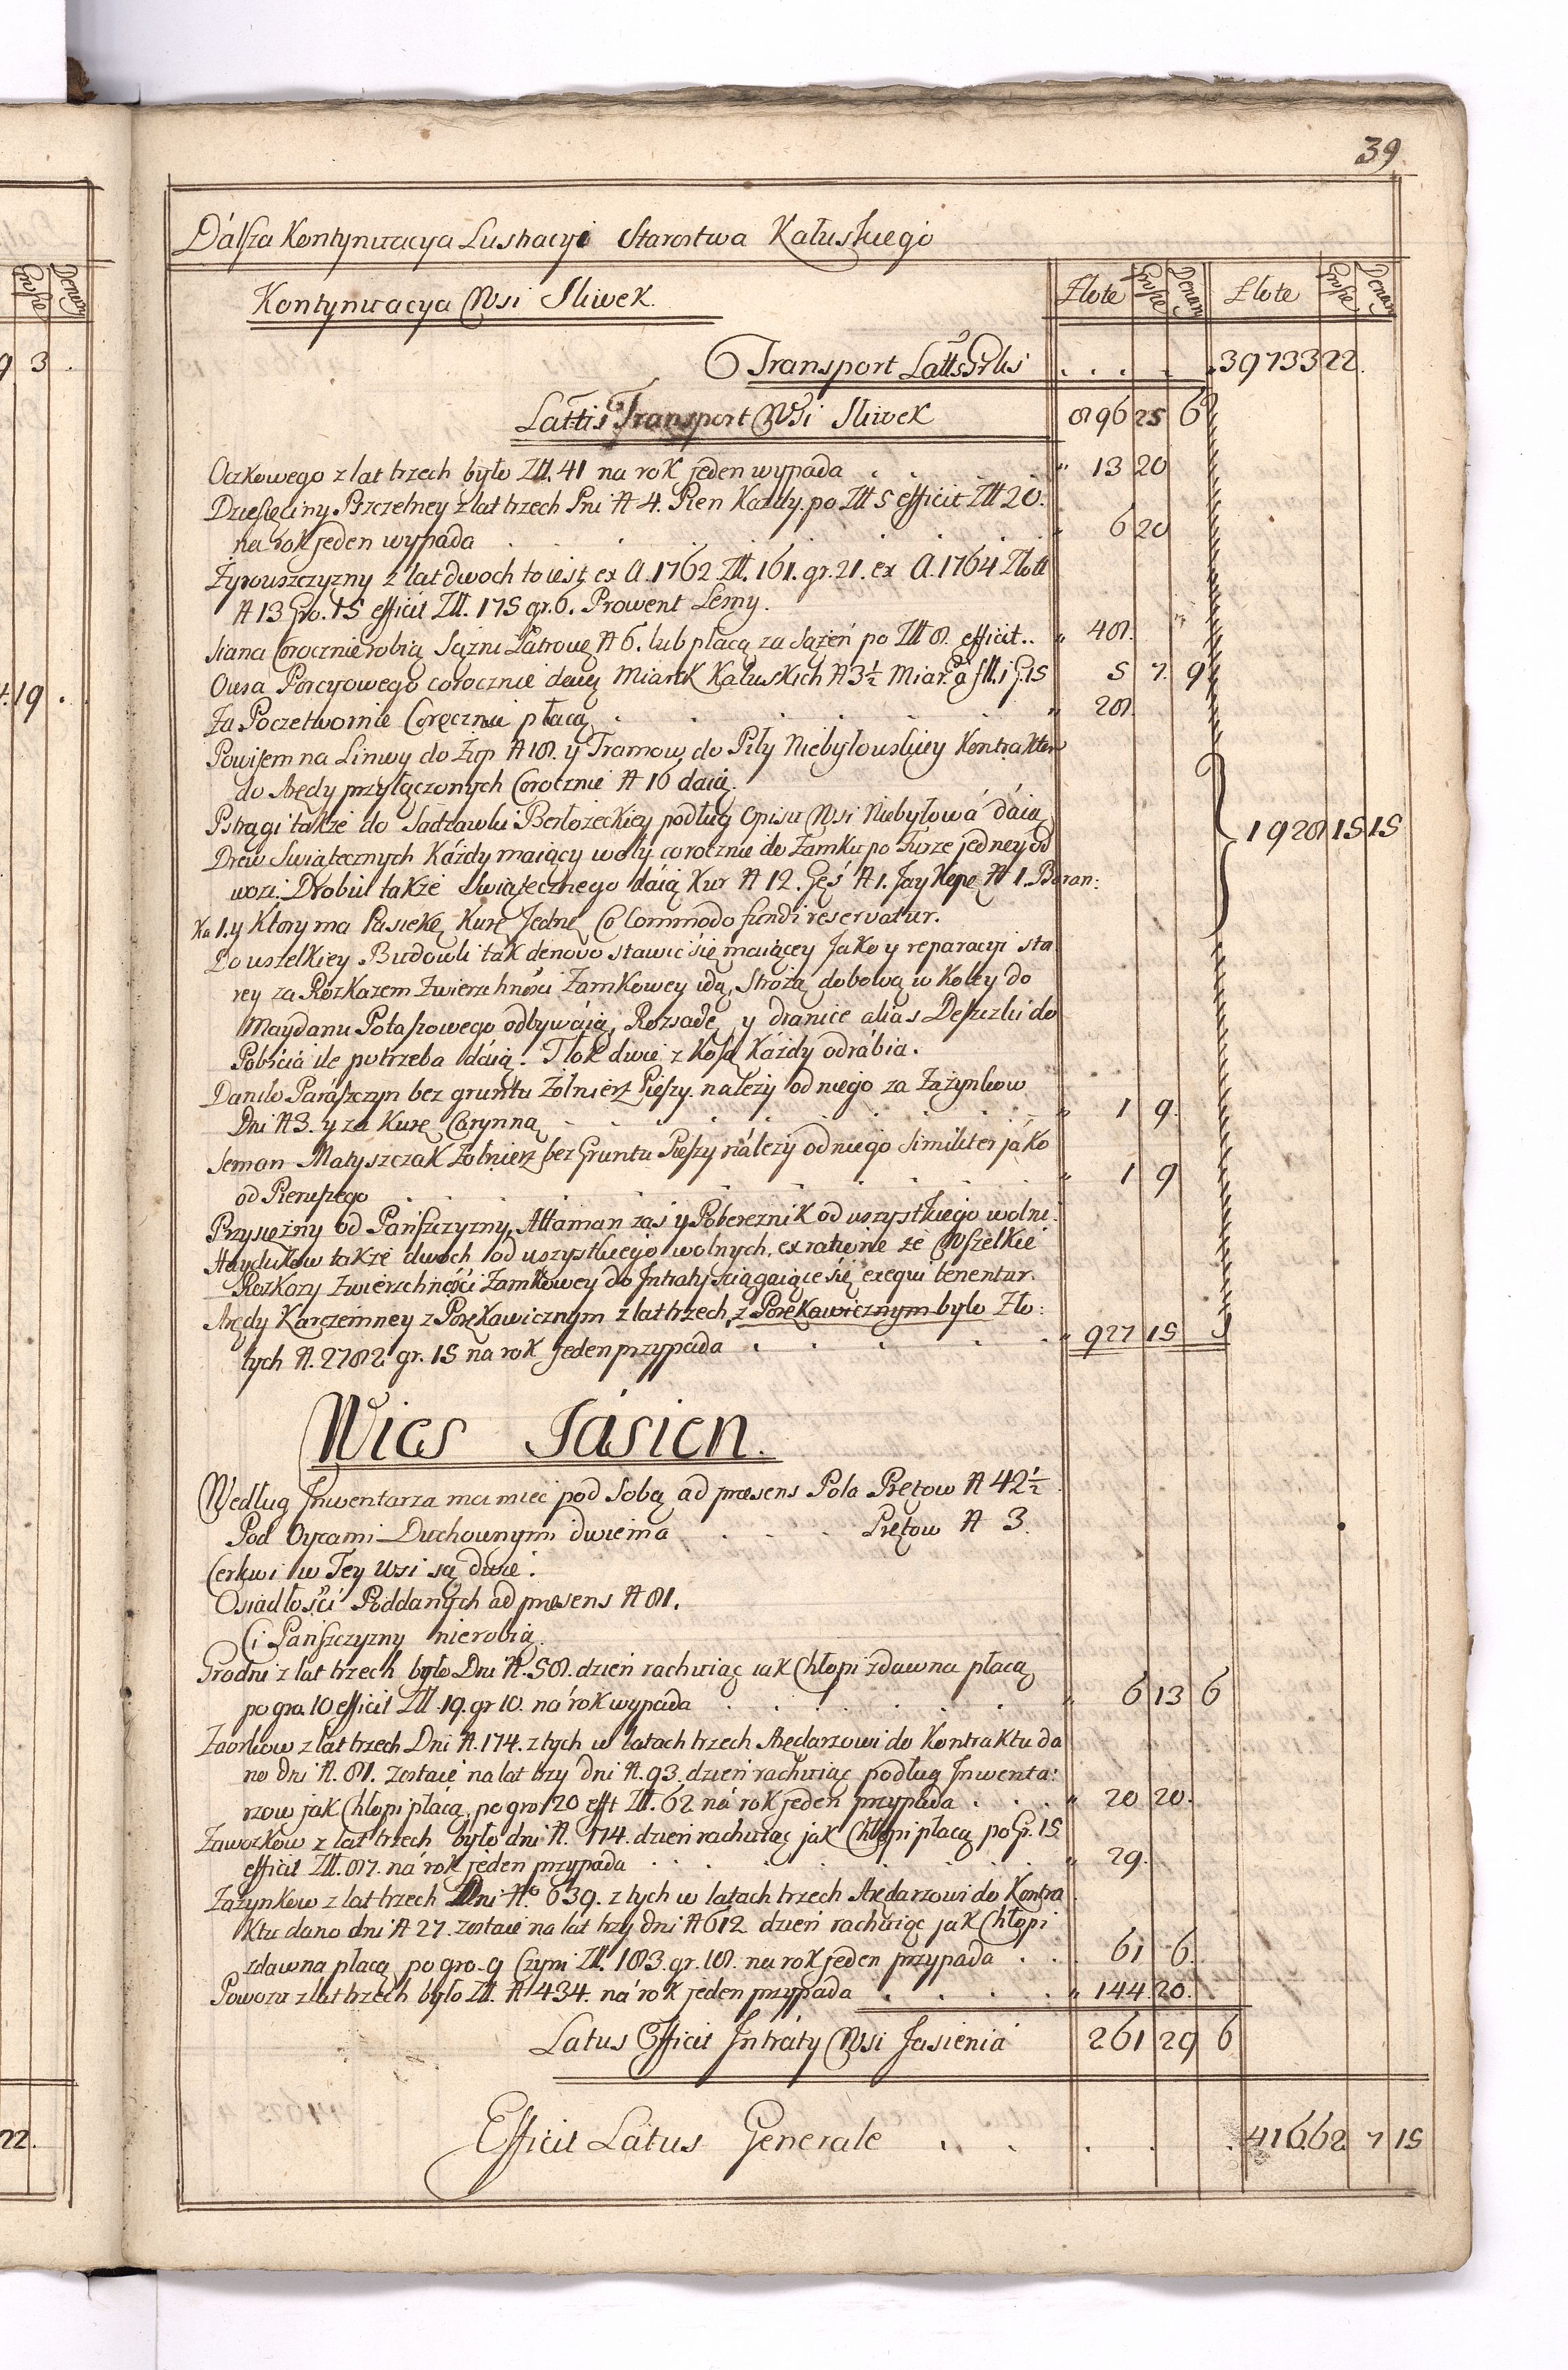 39
Dálsza Kontynuacya Lustracyi Starostwa Kałuskiego
Kontynuacya Wsi Sliwek. Złote Grosze Denary Złote Grosze Denary
Transport Lattis Grlis . . . . 39733 22.
Lattis Transport Wsi Sliwek 896 25 6
Oczkowego z lat trzech było Złł. 41 na rok jeden wypada . . " 13 20
Dziesięciny Pszczelney z lat trzech Pni A 4. Pien Każdy po Złł 5 efficit Złł 20.
na rok jeden wypada . . . . " 6 20
Żyrowszczyzny z lat dwoch to iest ex A. 1762 Złł. 161. gr. 21. ex A. 1764 Złott
A 13 Gro. 15 efficit Złł. 175 gr. 6. Prowent Lesny.
Siana Corocznie robią Sążni Łatrową A 6. lub płacą za Sążeń po Złł 8. efficit.. " 48.
Owsa Porcyowego corocznie daią Miarek Kałuskich A 3½ Miar. Pa fll. i G. 15 5 7. 9
Za Poczetwornie Corocznie płacą . . . . " 28.
Powisem na Linwy do Żup A 18. y Tramow do Piły Niebyłowskiey Kontraktem
do Arędy przyłączonych Corocznie A 16 daią.
Pstrągi także do Sadzawki Berłożeckiey podług Opisu Wsi Niebyłowá dáią
Drew Swiątecznych Káżdy maiący woły corocznie do Zamku po Furze jedney od 1928 15 15
wozi. Drobiu także Swiątecznego dáią Kur A 12. Gęś A 1. Jay Kopę A 1. Baran:
Ka 1. y Ktory ma Pasiekę Kurę Jednę Co Commodo fundi reservatur.
Do wszelkiey Budowli tak denovo stawić się maiącey Jako y reparacyi sta
rey za Rozkazem Zwierzchności Zamkowey idą, Strożą dobową w Koley do
Maydanu Potaszowego odbywáią, Rozsadę y dranice alias Deszczki do
Pobścia ile potrzeba dáią. Tłok dwie z Kosą Káżdy odrábia.
Danilo Parászczyn bez gruntu Żołnierz Pieszy. należy od niego za Zażynkow
Dni A 3. y za Kurę Czynną . . . . " 1 9.
Seman Matyszczak Żołnierz bez Gruntu Pieszy náleży od niego similiter jáko
od Pierwszego . . . . " 1 9
Przysiężny od Pańszczyzny, Attaman zaś y Pobereżnik od wszystkiego wolni.
Haydukow także dwoch od wszystkiego wolnych, ex ratione że Wszelkie
Rozkazy Zwierzchności Zamkowey do Intraty sciągaiące się exequi tenentur.
Arędy Karczemney z Porękawicznym z lat trzech z Porękawicznym było Zło:
tych A. 2782 gr. 15 na rok jeden przypada . . . . " 927 15
Wies Jásien.
Według Inwentarza ma miec pod Sobą ad præsens Pola Prętow A 42½
Pod Oycami Duchownymi dwiema . . . Prętow A 3.
Cerkwi w Tey Wsi są dwie.
Osiadłości Poddanych ad præsens A 81.
Ci Pańszczyzny nie robią.
Grodni z lat trzech było Dni A. 58. dzień rachuiąc iak Chłopi zdawna płacą
po gro. 10 efficit Złł 19. gr 10. na rok wypada . . . . " 6 13 6
Zaorkow z lat trzech Dni A. 174. z tych w latach trzech Arędarzowi do Kontraktu da
no dni A. 81. zostaie na lat trzy dni A. 93. dzień rachuiąc podług Inwenta:
rzow jak Chłopi płacą, po gro 20 efft Złł. 62 ná rok jeden przypada . . . " 20 20.
Zawozkow z lat trzech było dni A. 174. dzień rachuiąc jak Chłopi płacą po Gr. 15
efficit Złł. 87. ná rok jeden przypáda . . . . " 29.
Zażynkow z lat trzech Dni A° 639. z tych w latach trzech Arędarzowi do Kontra
ktu dano dni A 27. zostaie na lat trzy dni A 612 dzień rachuiąc jak Chłopi
zdawna płacą po gro. 9 Czyni Złł. 183. gr. 18. na rok jeden przypada . . . 61 6.
Powozu z lat trzech było Złł. A 434. ná rok jeden przypada . . . . " 144 20.
Latus Efficit Intráty Wsi Jasieniá 261 29 6
Efficit Latus Generale . . . . 41662 7 15